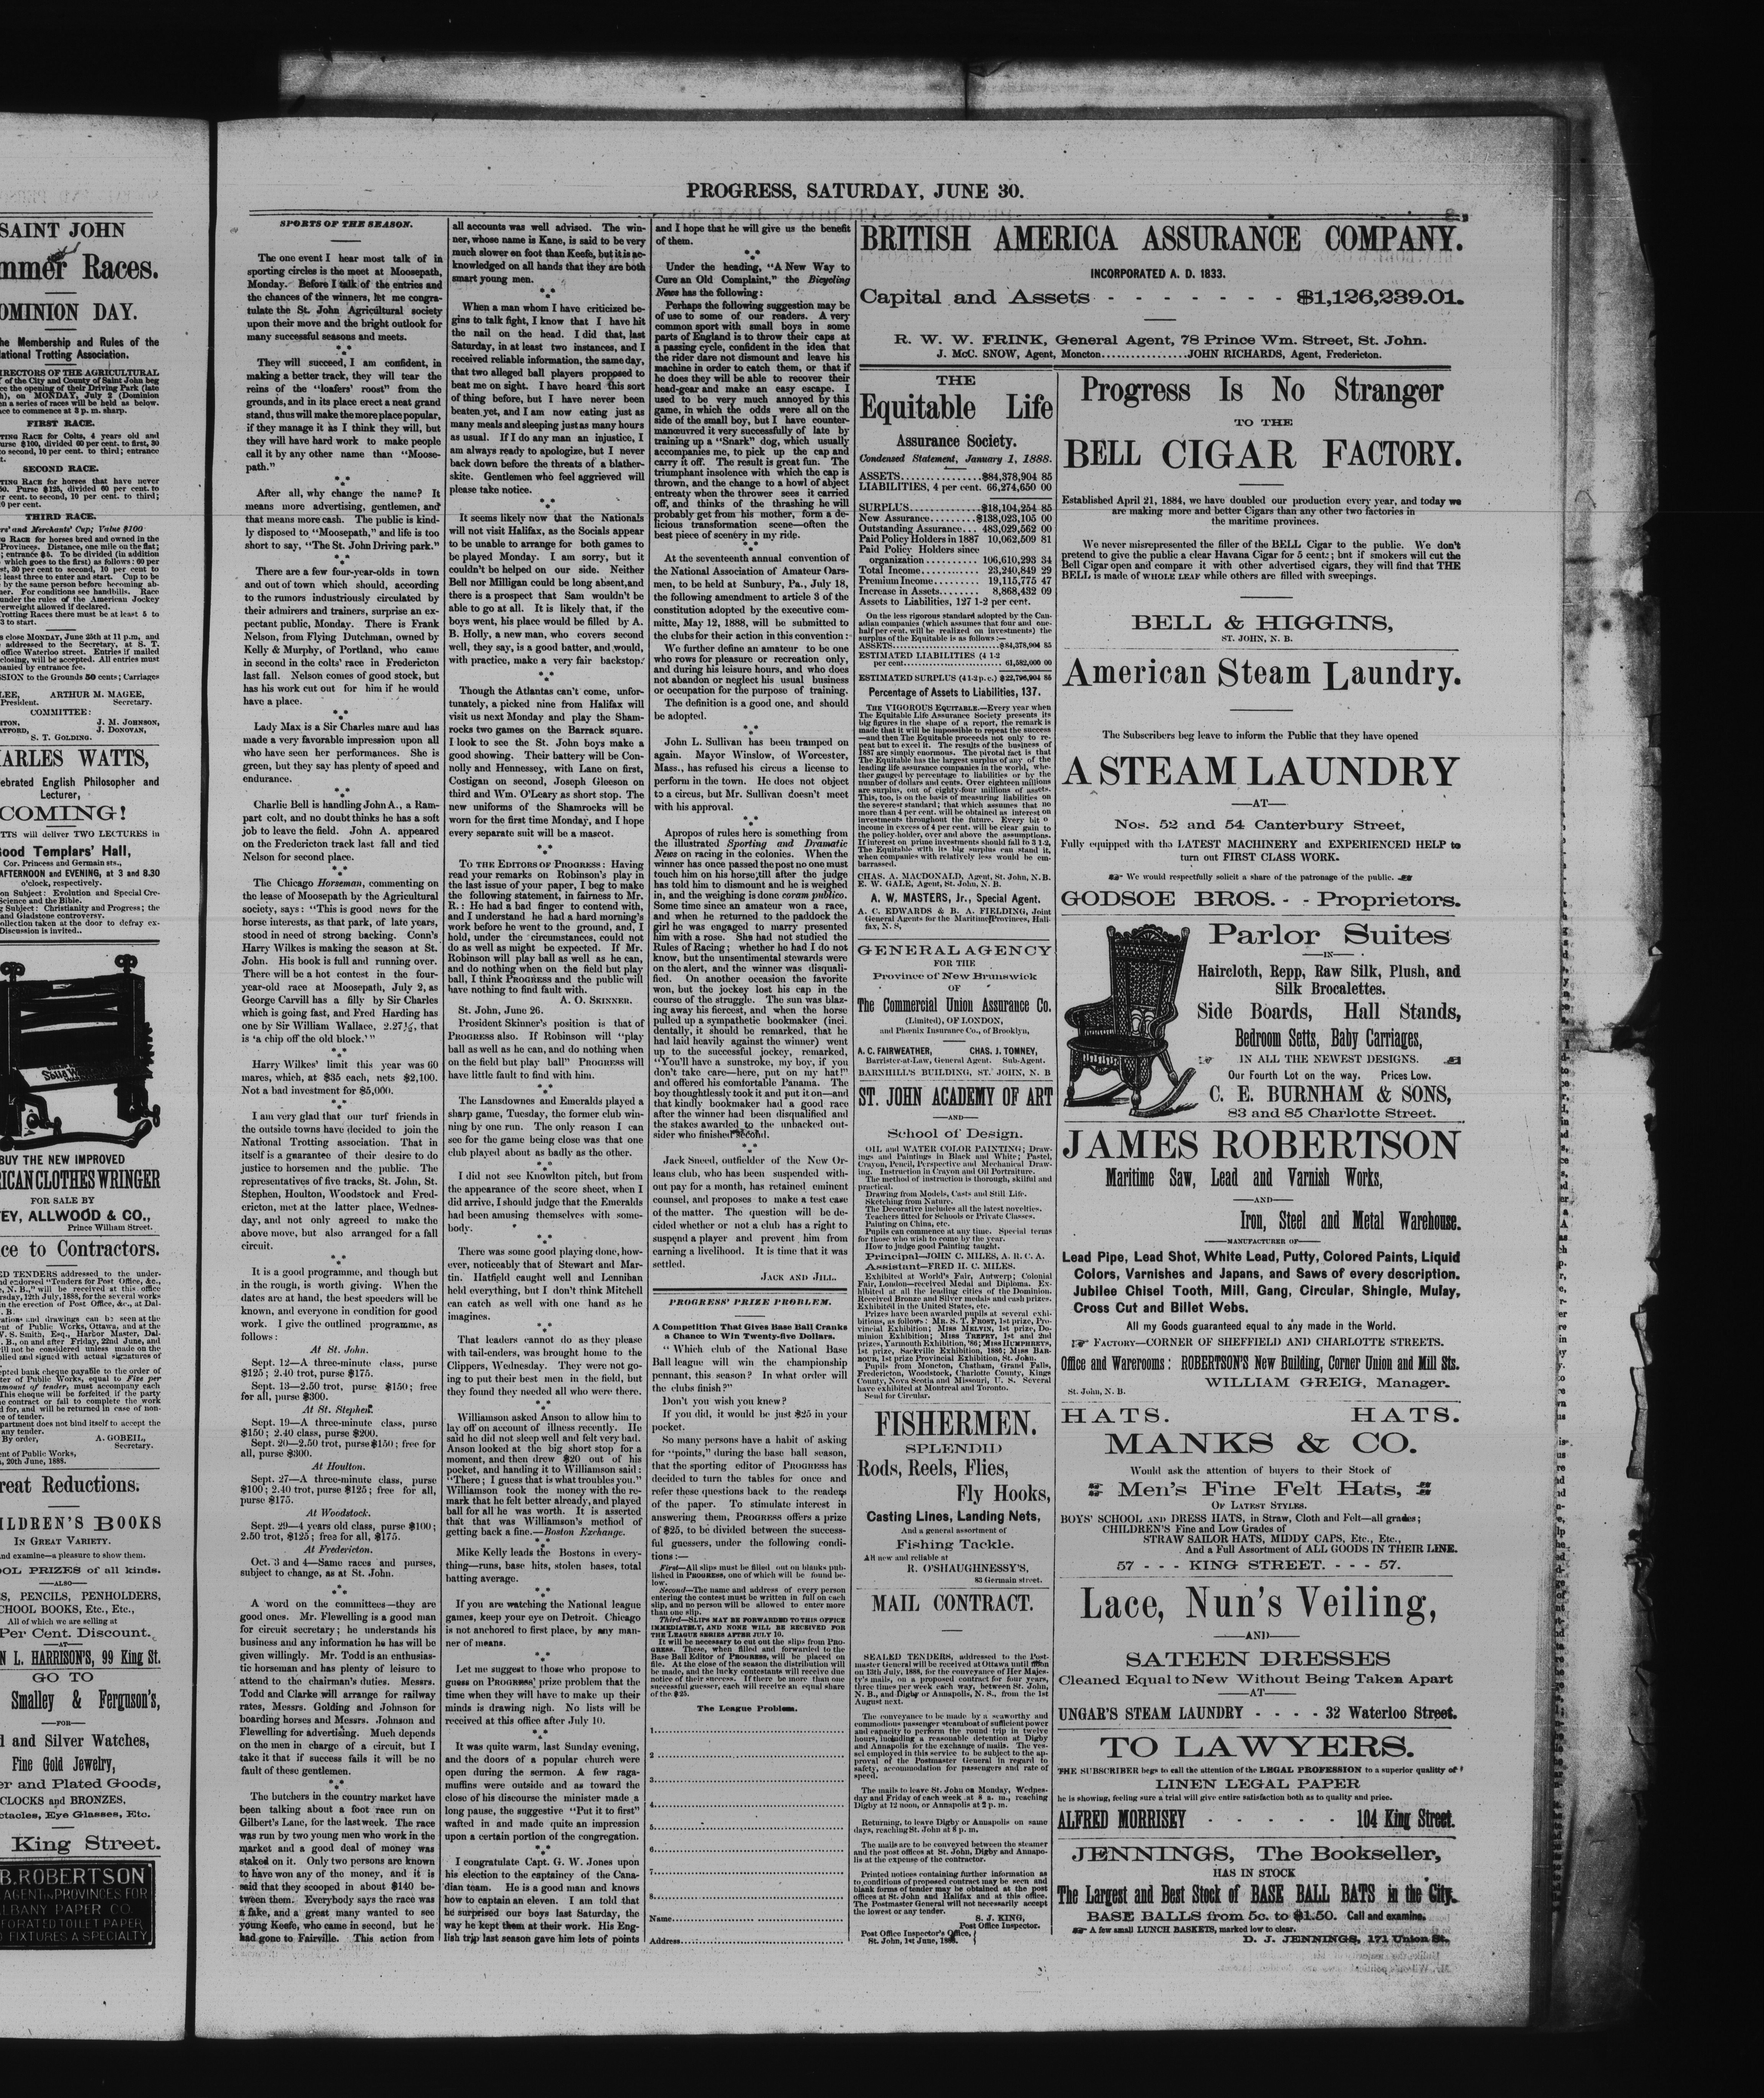 SAINT JOHN
mmer Races.
OMINION DAY.
he Membership and Rules of the
ational Trotting Association.
IRECTORS OF THE AGRICULTURAL
of the City and County of Saint John beg
ce the opening of their Driving Park (late
h), on MONDAY, July 2 (Dominion
en a series of races will be held as below.
ace to commence at 3 p. m. sharp.
FIRST RACE.
TING RACE for Colts, 4 years old and
urse $100, divided 60 per cent. to first, 30
to second, 10 per cent. to third; entrance
t.
SECOND RACE.
TING RACE for horses that have never
50. Purse $125, divided 60 per cent. to
er cent. to second, 10 per cent. to third;
0 per cent.
THIRD RACE.
rs' and Merchants' Cup; Value $100
G RACE for horses bred and owned in the
Provinces. Distance, one mile on the flat;
; entrance $5. To be divided (in addition
which goes to the first) as follows: 60 per
st, 30 per cent to second, 10 per cent to
least three to enter and start. Cup to be
by the same person before becoming ab-
ner. For conditions see handbills. Race
under the rules of the American Jockey
verweight allowed if declared.
rotting Races there must be at least 5 to
3 to start.
s close MONDAY, June 25th at 11 p.m, and
addressed to the Secretary, at S. T.
office Waterloo street. Entries if mailed
closing, will be accepted. All entries must
panied by entrance fee.
SSION to the Grounds 50 cents; Carriages
LEE, ARTHUR M. MAGEE,
President. Secretary.
COMMITTEE:
TON, J. M. JOHNSON,
ATFORD, J. DONOVAN,
S. T. GOLDING.
ARLES WATTS,
ebrated English Philosopher and
Lecturer,
COMING!
TTS will deliver TWO LECTURES in
ood Templars' Hall,
Cor. Princess and Germain sts.,
AFTERNOON and EVENING, at 3 and 8.30
o'clock, respectively.
on Subject: Evolution and Special Cre-
Science and the Bible.
g Subject: Christianity and Progress; the
and Gladstone controversy.
ollection taken at the door to defray ex-
Discussion is invited..
BUY THE NEW IMPROVED
RICAN CLOTHES WRINGER
FOR SALE BY
EY, ALLWOOD & CO.,
Prince William Street.
ce to Contractors.
ED TENDERS addressed to the under-
nd endorsed "Tenders for Post Office, &c.,
e, N. B.," will be received at this office
rsday, 12th July, 1888, for the several works
in the erection of Post Office, &c., at Dal-
. B.
ations and drawings can be seen at the
ent of Public Works, Ottawa, and at the
W. S. Smith, Esq., Harbor Master, Dal-
. B., on and after Friday, 22nd June, and
ill not be considered unless made on the
plied and signed with actual signatures of
epted bank cheque payable to the order of
ter of Public Works, equal to Five per
amount of tender, must accompany each
This cheque will be forfeited if the party
e contract or fail to complete the work
d for, and will be returned in case of non-
e of tender.
partment does not bind itself to accept the
any tender.
By order, A. GOBEIL,
Secretary.
ent of Public Works,
, 20th June, 1888.
reat Reductions.
ILDREN'S BOOKS
IN GREAT VARIETY.
nd examine—a pleasure to show them.
OOL PRIZES of all kinds.
—ALSO—
S, PENCILS, PENHOLDERS,
CHOOL BOOKS, Etc., Etc.,
All of which we are selling at
Per Cent. Discount.
—AT—
N L. HARRISON'S, 99 King St.
GO TO
Smalley & Ferguson's,
—FOR—
d and Silver Watches,
Fine Gold Jewelry,
er and Plated Goods,
CLOCKS and BRONZES,
ctacles, Eye Glasses, Etc.
King Street.
B. ROBERTSON
AGENT IN PROVINCES FOR
LBANY PAPER CO.
FORATED TOILET PAPER
D FIXTURES A SPECIALTY
PROGRESS, SATURDAY, JUNE 30.
SPORTS OF THE SEASON.
The one event I hear most talk of in
sporting circles is the meet at Moosepath,
Monday. Before I talk of the entries and
the chances of the winners, let me congra-
tulate the St. John Agricultural society
upon their move and the bright outlook for
many successful seasons and meets.
They will succeed, I am confident, in
making a better track, they will tear the
reins of the "loafers' roost" from the
grounds, and in its place erect a neat grand
stand, thus will make the more place popular,
if they manage it as I think they will, but
they will have hard work to make people
call it by any other name than "Moose-
path."
After all, why change the name? It
means more advertising, gentlemen, and
that means more cash. The public is kind-
ly disposed to "Moosepath," and life is too
short to say, "The St. John Driving park."
There are a few four-year-olds in town
and out of town which should, according
to the rumors industriously circulated by
their admirers and trainers, surprise an ex-
pectant public, Monday. There is Frank
Nelson, from Flying Dutchman, owned by
Kelly & Murphy, of Portland, who came
in second in the colts' race in Fredericton
last fall. Nelson comes of good stock, but
has his work cut out for him if he would
have a place.
Lady Max is a Sir Charles mare and has
made a very favorable impression upon all
who have seen her performances. She is
green, but they say has plenty of speed and
endurance.
Charlie Bell is handling John A., a Ram-
part colt, and no doubt thinks he has a soft
job to leave the field. John A. appeared
on the Fredericton track last fall and tied
Nelson for second place.
The Chicago Horseman, commenting on
the lease of Moosepath by the Agricultural
society, says: "This is good news for the
horse interests, as that park, of late years,
stood in need of strong backing. Conn's
Harry Wilkes is making the season at St.
John. His book is full and running over.
There will be a hot contest in the four-
year-old race at Moosepath, July 2, as
George Carvill has a filly by Sir Charles
which is going fast, and Fred Harding has
one by Sir William Wallace, 2.27½, that
is 'a chip off the old block.'"
Harry Wilkes' limit this year was 60
mares, which, at $35 each, nets $2,100.
Not a bad investment for $5,000.
I am very glad that our turf friends in
the outside towns have decided to join the
National Trotting association. That in
itself is a guarantee of their desire to do
justice to horsemen and the public. The
representatives of five tracks, St. John, St.
Stephen, Houlton, Woodstock and Fred-
ericton, met at the latter place, Wednes-
day, and not only agreed to make the
above move, but also arranged for a fall
circuit.
It is a good programme, and though but
in the rough, is worth giving. When the
dates are at hand, the best speeders will be
known, and everyone in condition for good
work. I give the outlined programme, as
follows:
At St. John.
Sept. 12—A three-minute class, purse
$125; 2.40 trot, purse $175.
Sept. 13—2.50 trot, purse $150; free
for all, purse $300.
At St. Stephen.
Sept. 19—A three-minute class, purse
$150; 2.40 class, purse $200.
Sept. 20—2.50 trot, purse $150; free for
all, purse $300.
At Houlton.
Sept. 27—A three-minute class, purse
$100; 2.40 trot, purse $125; free for all,
purse $175.
At Woodstock.
Sept. 29—4 years old class, purse $100;
2.50 trot, $125; free for all, $175.
At Fredericton.
Oct. 3 and 4—Same races and purses,
subject to change, as at St. John.
A word on the committees—they are
good ones. Mr. Flewelling is a good man
for circuit secretary; he understands his
business and any information he has will be
given willingly. Mr. Todd is an enthusias-
tic horseman and has plenty of leisure to
attend to the chairman's duties. Messrs.
Todd and Clarke will arrange for railway
rates, Messrs. Golding and Johnson for
boarding horses and Messrs. Johnson and
Flewelling for advertising. Much depends
on the men in charge of a circuit, but I
take it that if success fails it will be no
fault of these gentlemen.
The butchers in the country market have
been talking about a foot race run on
Gilbert's Lane, for the last week. The race
was run by two young men who work in the
market and a good deal of money was
staked on it. Only two persons are known
to have won any of the money, and it is
said that they scooped in about $140 be-
tween them. Everybody says the race was
a fake, and a great many wanted to see
young Keefe, who came in second, but he
had gone to Fairville. This action from
all accounts was well advised. The win-
ner, whose name is Kane, is said to be very
much slower on foot than Keefe, but it is ac-
knowledged on all hands that they are both
smart young men.
When a man whom I have criticized be-
gins to talk fight, I know that I have hit
the nail on the head. I did that, last
Saturday, in at least two instances, and I
received reliable information, the same day,
that two alleged ball players proposed to
beat me on sight. I have heard this sort
of thing before, but I have never been
beaten yet, and I am now eating just as
many meals and sleeping just as many hours
as usual. If I do any man an injustice, I
am always ready to apologize, but I never
back down before the threats of a blather-
skite. Gentlemen who feel aggrieved will
please take notice.
It seems likely now that the Nationals
will not visit Halifax, as the Socials appear
to be unable to arrange for both games to
be played Monday. I am sorry, but it
couldn't be helped on our side. Neither
Bell nor Milligan could be long absent, and
there is a prospect that Sam wouldn't be
able to go at all. It is likely that, if the
boys went, his place would be filled by A.
B. Holly, a new man, who covers second
well, they say, is a good batter, and would,
with practice, make a very fair backstop.
Though the Atlantas can't come, unfor-
tunately, a picked nine from Halifax will
visit us next Monday and play the Sham-
rocks two games on the Barrack square.
I look to see the St. John boys make a
good showing. Their battery will be Con-
nolly and Hennessey, with Lane on first,
Costigan on second, Joseph Gleeson on
third and Wm. O'Leary as short stop. The
new uniforms of the Shamrocks will be
worn for the first time Monday, and I hope
every separate suit will be a mascot.
TO THE EDITORS OF PROGRESS: Having
read your remarks on Robinson's play in
the last issue of your paper, I beg to make
the following statement, in fairness to Mr.
R.: He had a bad finger to contend with,
and I understand he had a hard morning's
work before he went to the ground, and, I
hold, under the circumstances, could not
do as well as might be expected. If Mr.
Robinson will play ball as well as he can,
and do nothing when on the field but play
ball, I think PROGRESS and the public will
have nothing to find fault with.
A. O. SKINNER.
St. John, June 26.
President Skinner's position is that of
PROGRESS also. If Robinson will "play
ball as well as he can, and do nothing when
on the field but play ball" PROGRESS will
have little fault to find with him.
The Lansdownes and Emeralds played a
sharp game, Tuesday, the former club win-
ning by one run. The only reason I can
see for the game being close was that one
club played about as badly as the other.
I did not see Knowlton pitch, but from
the appearance of the score sheet, when I
did arrive, I should judge that the Emeralds
had been amusing themselves with some-
body.
There was some good playing done, how-
ever, noticeably that of Stewart and Mar-
tin. Hatfield caught well and Lennihan
held everything, but I don't think Mitchell
can catch as well with one hand as he
imagines.
That leaders cannot do as they please
with tail-enders, was brought home to the
Clippers, Wednesday. They were not go-
ing to put their best men in the field, but
they found they needed all who were there.
Williamson asked Anson to allow him to
lay off on account of illness recently. He
said he did not sleep well and felt very bad.
Anson looked at the big short stop for a
moment, and then drew $20 out of his
pocket, and handing it to Williamson said:
"There; I guess that is what troubles you."
Williamson took the money with the re-
mark that he felt better already, and played
ball for all he was worth. It is asserted
that that was Williamson's method of
getting back a fine.—Boston Exchange.
Mike Kelly leads the Bostons in every-
thing—runs, base hits, stolen bases, total
batting average.
If you are watching the National league
games, keep your eye on Detroit. Chicago
is not anchored to first place, by any man-
ner of means.
Let me suggest to those who propose to
guess on PROGRESS' prize problem that the
time when they will have to make up their
minds is drawing nigh. No lists will be
received at this office after July 10.
It was quite warm, last Sunday evening,
and the doors of a popular church were
open during the sermon. A few raga-
muffins were outside and as toward the
close of his discourse the minister made a
long pause, the suggestive "Put it to first"
wafted in and made quite an impression
upon a certain portion of the congregation.
I congratulate Capt. G. W. Jones upon
his election to the captaincy of the Cana-
dian team. He is a good man and knows
how to captain an eleven. I am told that
he surprised our boys last Saturday, the
way he kept them at their work. His Eng-
lish trip last season gave him lots of points
and I hope that he will give us the benefit
of them.
Under the heading, "A New Way to
Cure an Old Complaint," the Bicycling
News has the following:
Perhaps the following suggestion may be
of use to some of our readers. A very
common sport with small boys in some
parts of England is to throw their caps at
a passing cycle, confident in the idea that
the rider dare not dismount and leave his
machine in order to catch them, or that if
he does they will be able to recover their
head-gear and make an easy escape. I
used to be very much annoyed by this
game, in which the odds were all on the
side of the small boy, but I have counter-
manœuvred it very successfully of late by
training up a "Snark" dog, which usually
accompanies me, to pick up the cap and
carry it off. The result is great fun. The
triumphant insolence with which the cap is
thrown, and the change to a howl of abject
entreaty when the thrower sees it carried
off, and thinks of the thrashing he will
probably get from his mother, form a de-
licious transformation scene—often the
best piece of scenery in my ride.
At the seventeenth annual convention of
the National Association of Amateur Oars-
men, to be held at Sunbury, Pa., July 18,
the following amendment to article 3 of the
constitution adopted by the executive com-
mitte, May 12, 1888, will be submitted to
the clubs for their action in this convention:
We further define an amateur to be one
who rows for pleasure or recreation only,
and during his leisure hours, and who does
not abandon or neglect his usual business
or occupation for the purpose of training.
The definition is a good one, and should
be adopted.
John L. Sullivan has been tramped on
again. Mayor Winslow, of Worcester,
Mass., has refused his circus a license to
perform in the town. He does not object
to a circus, but Mr. Sullivan doesn't meet
with his approval.
Apropos of rules here is something from
the illustrated Sporting and Dramatic
News on racing in the colonies. When the
winner has once passed the post no one must
touch him on his horse till after the judge
has told him to dismount and he is weighed
in, and the weighing is done coram publico.
Some time since an amateur won a race,
and when he returned to the paddock the
girl he was engaged to marry presented
him with a rose. She had not studied the
Rules of Racing; whether he had I do not
know, but the unsentimental stewards were
on the alert, and the winner was disquali-
fied. On another occasion the favorite
won, but the jockey lost his cap in the
course of the struggle. The sun was blaz-
ing away his fiercest, and when the horse
pulled up a sympathetic bookmaker (inci.
dentally, it should be remarked, that he
had laid heavily against the winner) went
up to the successful jockey, remarked,
"You'll have a sunstroke, my boy, if you
don't take care—here, put on my hat!"
and offered his comfortable Panama. The
boy thoughtlessly took it and put it on—and
that kindly bookmaker had a good race
after the winner had been disqualified and
the stakes awarded to the unbacked out-
sider who finished second.
Jack Sneed, outfielder of the New Or-
leans club, who has been suspended with-
out pay for a month, has retained eminent
counsel, and proposes to make a test case
of the matter. The question will be de-
cided whether or not a club has a right to
suspend a player and prevent him from
earning a livelihood. It is time that it was
settled.
JACK AND JILL.
PROGRESS' PRIZE PROBLEM.
A Competition That Gives Base Ball Cranks
a Chance to Win Twenty-five Dollars.
"Which club of the National Base
Ball league will win the championship
pennant, this season? In what order will
the clubs finish?"
Don't you wish you knew?
If you did, it would be just $25 in your
pocket.
So many persons have a habit of asking
for "points," during the base ball season,
that the sporting editor of PROGRESS has
decided to turn the tables for once and
refer these questions back to the readers
of the paper. To stimulate interest in
answering them, PROGRESS offers a prize
of $25, to be divided between the success-
ful guessers, under the following condi-
tions:—
First—All slips must be filled out on blanks pub-
lished in PROGRESS, one of which will be found be-
low.
Second—The name and address of every person
entering the contest must be written in full on each
slip, and no person will be allowed to enter more
than one slip.
Third—SLIPS MAY BE FORWARDED TO THIS OFFICE
IMMEDIATELY, AND NONE WILL BE RECEIVED FOR
THE LEAGUE SERIES AFTER JULY 10.
It will be necessary to cut out the slips from PRO-
GRESS. These, when filled and forwarded to the
Base Ball Editor of PROGRESS, will be placed on
file. At the close of the season the distribution will
be made, and the lucky contestants will receive due
notice of their success. If there be more than one
successful guesser, each will receive an equal share
of the $25.
The League Problem.
1
2
3
4
5
6
7
8
Name
Address
BRITISH AMERICA ASSURANCE COMPANY.
INCORPORATED A. D. 1833.
Capital and Assets - - - - - - - $1,126,239.01.
R. W. W. FRINK, General Agent, 78 Prince Wm. Street, St. John.
J. McC. SNOW, Agent, Moncton................JOHN RICHARDS, Agent, Fredericton.
THE
Equitable Life
Assurance Society.
Condensed Statement, January 1, 1888.
ASSETS...............$84,378,904 85
LIABILITIES, 4 per cent. 66,274,650 00
SURPLUS.............$18,104,254 85
New Assurance........$138,023,105 00
Outstanding Assurance... 483,029,562 00
Paid Policy Holders in 1887 10,062,509 81
Paid Policy Holders since
organization.......... 106,610,293 34
Total Income........... 23,240,849 29
Premium Income......... 19,115,775 47
Increase in Assets........ 8,868,432 09
Assets to Liabilities, 127 1-2 per cent.
On the less rigorous standard adopted by the Can-
adian companies (which assumes that four and one-
half per cent. will be realized on investments) the
surplus of the Equitable is as follows:—
ASSETS...........................$84,378,904 85
ESTIMATED LIABILITIES (4 1-2
per cent.......................... 61,582,000 00
ESTIMATED SURPLUS (4 1-2 p. c.) $22,796,904 85
Percentage of Assets to Liabilities, 137.
THE VIGOROUS EQUITABLE.—Every year when
The Equitable Life Assurance Society presents its
big figures in the shape of a report, the remark is
made that it will be impossible to repeat the success
—and then The Equitable proceeds not only to re-
peat but to excel it. The results of the business of
1887 are simply enormous. The pivotal fact is that
The Equitable has the largest surplus of any of the
leading life assurance companies in the world, whe-
ther gauged by percentage to liabilities or by the
number of dollars and cents. Over eighteen millions
are surplus, out of eighty-four millions of assets.
This, too, is on the basis of measuring liabilities on
the severest standard; that which assumes that no
more than 4 per cent. will be obtained as interest on
investments throughout the future. Every bit o
income in excess of 4 per cent. will be clear gain to
the policy-holder, over and above the assumptions.
If interest on prime investments should fall to 3 1-2,
The Equitable with its big surplus can stand it,
when companies with relatively less would be em-
barrassed.
CHAS. A. MACDONALD, Agent, St. John, N.B.
E. W. GALE, Agent, St. John, N. B.
A. W. MASTERS, Jr., Special Agent.
A. C. EDWARDS & B. A. FIELDING, Joint
General Agents for the Maritime Provinces, Hali-
fax, N. S,
GENERAL AGENCY
FOR THE
Province of New Brunswick
OF
The Commercial Union Assurance Co.
(Limited), OF LONDON,
and Phenix Insurance Co., of Brooklyn,
A. C. FAIRWEATHER, CHAS. J. TOMNEY,
Barrister-at-Law, General Agent. Sub-Agent.
BARNHILL'S BUILDING, ST. JOHN, N. B
ST. JOHN ACADEMY OF ART
—AND—
School of Design.
OIL and WATER COLOR PAINTING; Draw-
ings and Paintings in Black and White; Pastel,
Crayon, Pencil, Perspective and Mechanical Draw-
ing. Instruction in Crayon and Oil Portraiture.
The method of instruction is thorough, skilful and
practical.
Drawing from Models, Casts and Still Life.
Sketching from Nature.
The Decorative includes all the latest novelties.
Teachers fitted for Schools or Private Classes.
Painting on China, etc.
Pupils can commence at any time. Special terms
for those who wish to come by the year.
How to judge good Painting taught.
Principal—JOHN C. MILES, A. R. C. A.
Assistant—FRED H. C. MILES.
Exhibited at World's Fair, Antwerp; Colonial
Fair, London—received Medal and Diploma. Ex-
hibited at all the leading cities of the Dominion.
Received Bronze and Silver medals and cash prizes.
Exhibited in the United States, etc.
Prizes have been awarded pupils at several exhi-
bitions, as follows: MR. S. T. FROST, 1st prize, Pro-
vincial Exhibition; MISS MELVIN, 1st prize, Do-
minion Exhibition; MISS TREFRY, 1st and 2nd
prizes, Yarmouth Exhibition, '86; MISS HUMPHREYS,
1st prize, Sackville Exhibition, 1886; MISS BAR-
BOUR, 1st prize Provincial Exhibition, St. John.
Pupils from Moncton, Chatham, Grand Falls,
Fredericton, Woodstock, Charlotte County, Kings
County, Nova Scotia and Missouri, U. S. Several
have exhibited at Montreal and Toronto.
Send for Circular.
FISHERMEN.
SPLENDID
Rods, Reels, Flies,
Fly Hooks,
Casting Lines, Landing Nets,
And a general assortment of
Fishing Tackle.
All new and reliable at
R. O'SHAUGHNESSY'S,
83 Germain street.
MAIL CONTRACT.
SEALED TENDERS, addressed to the Post-
master General will be received at Ottawa until noon
on 13th July, 1888, for the conveyance of Her Majes-
ty's mails, on a proposed contract for four years,
three times per week each way, between St. John,
N. B., and Digby or Annapolis, N. S., from the 1st
August next.
The conveyance to be made by a seaworthy and
commodious passenger steamboat of sufficient power
and capacity to perform the round trip in twelve
hours, including a reasonable detention at Digby
and Annapolis for the exchange of mails. The ves-
sel employed in this service to be subject to the ap-
proval of the Postmaster General in regard to
safety, accommodation for passengers and rate of
speed.
The mails to leave St. John on Monday, Wednes-
day and Friday of each week at 8 a. m., reaching
Digby at 12 noon, or Annapolis at 2 p. m.
Returning, to leave Digby or Annapolis on same
days, reaching St. John at 8 p. m.
The mails are to be conveyed between the steamer
and the post offices at St. John, Digby and Annapo-
lis at the expense of the contractor.
Printed notices containing further information as
to conditions of proposed contract may be seen and
blank forms of tender may be obtained at the post
offices at St. John and Halifax and at this office.
The Postmaster General will not necessarily accept
the lowest or any tender.
S. J. KING,
Post Office Inspector.
Post Office Inspector's Office,
St. John, 1st June, 1888.
Progress Is No Stranger
TO THE
BELL CIGAR FACTORY.
Established April 21, 1884, we have doubled our production every year, and today we
are making more and better Cigars than any other two factories in
the maritime provinces.
We never misrepresented the filler of the BELL Cigar to the public. We don't
pretend to give the public a clear Havana Cigar for 5 cent.; bnt if smokers will cut the
Bell Cigar open and compare it with other advertised cigars, they will find that THE
BELL is made of WHOLE LEAF while others are filled with sweepings.
BELL & HIGGINS,
ST. JOHN, N. B.
American Steam Laundry.
The Subscribers beg leave to inform the Public that they have opened
A STEAM LAUNDRY
—AT—
Nos. 52 and 54 Canterbury Street,
Fully equipped with the LATEST MACHINERY and EXPERIENCED HELP to
turn out FIRST CLASS WORK.
We would respectfully solicit a share of the patronage of the public.
GODSOE BROS. - - Proprietors.
Parlor Suites
—IN—
Haircloth, Repp, Raw Silk, Plush, and
Silk Brocalettes.
Side Boards, Hall Stands,
Bedroom Setts, Baby Carriages,
IN ALL THE NEWEST DESIGNS.
Our Fourth Lot on the way. Prices Low.
C. E. BURNHAM & SONS,
83 and 85 Charlotte Street.
JAMES ROBERTSON
Maritime Saw, Lead and Varnish Works,
—AND—
Iron, Steel and Metal Warehouse.
—MANUFACTURER OF—
Lead Pipe, Lead Shot, White Lead, Putty, Colored Paints, Liquid
Colors, Varnishes and Japans, and Saws of every description.
Jubilee Chisel Tooth, Mill, Gang, Circular, Shingle, Mulay,
Cross Cut and Billet Webs.
All my Goods guaranteed equal to any made in the World.
FACTORY—CORNER OF SHEFFIELD AND CHARLOTTE STREETS.
Office and Warerooms: ROBERTSON'S New Building, Corner Union and Mill Sts.
WILLIAM GREIG, Manager.
St. John, N. B.
HATS. HATS.
MANKS & CO.
Would ask the attention of buyers to their Stock of
Men's Fine Felt Hats,
OF LATEST STYLES.
BOYS' SCHOOL AND DRESS HATS, in Straw, Cloth and Felt—all grades;
CHILDREN'S Fine and Low Grades of
STRAW SAILOR HATS, MIDDY CAPS, Etc., Etc.,
And a Full Assortment of ALL GOODS IN THEIR LINE.
57 - - - KING STREET. - - - 57.
Lace, Nun's Veiling,
—AND—
SATEEN DRESSES
Cleaned Equal to New Without Being Taken Apart
—AT—
UNGAR'S STEAM LAUNDRY - - - - 32 Waterloo Street.
TO LAWYERS.
THE SUBSCRIBER begs to call the attention of the LEGAL PROFESSION to a superior quality of
LINEN LEGAL PAPER
he is showing, feeling sure a trial will give entire satisfaction both as to quality and price.
ALFRED MORRISEY - - - - - 104 King Street.
JENNINGS, The Bookseller,
HAS IN STOCK
The Largest and Best Stock of BASE BALL BATS in the City.
BASE BALLS from 5c. to $1.50. Call and examine.
A few small LUNCH BASKETS, marked low to clear.
D. J. JENNINGS, 171 Union St.